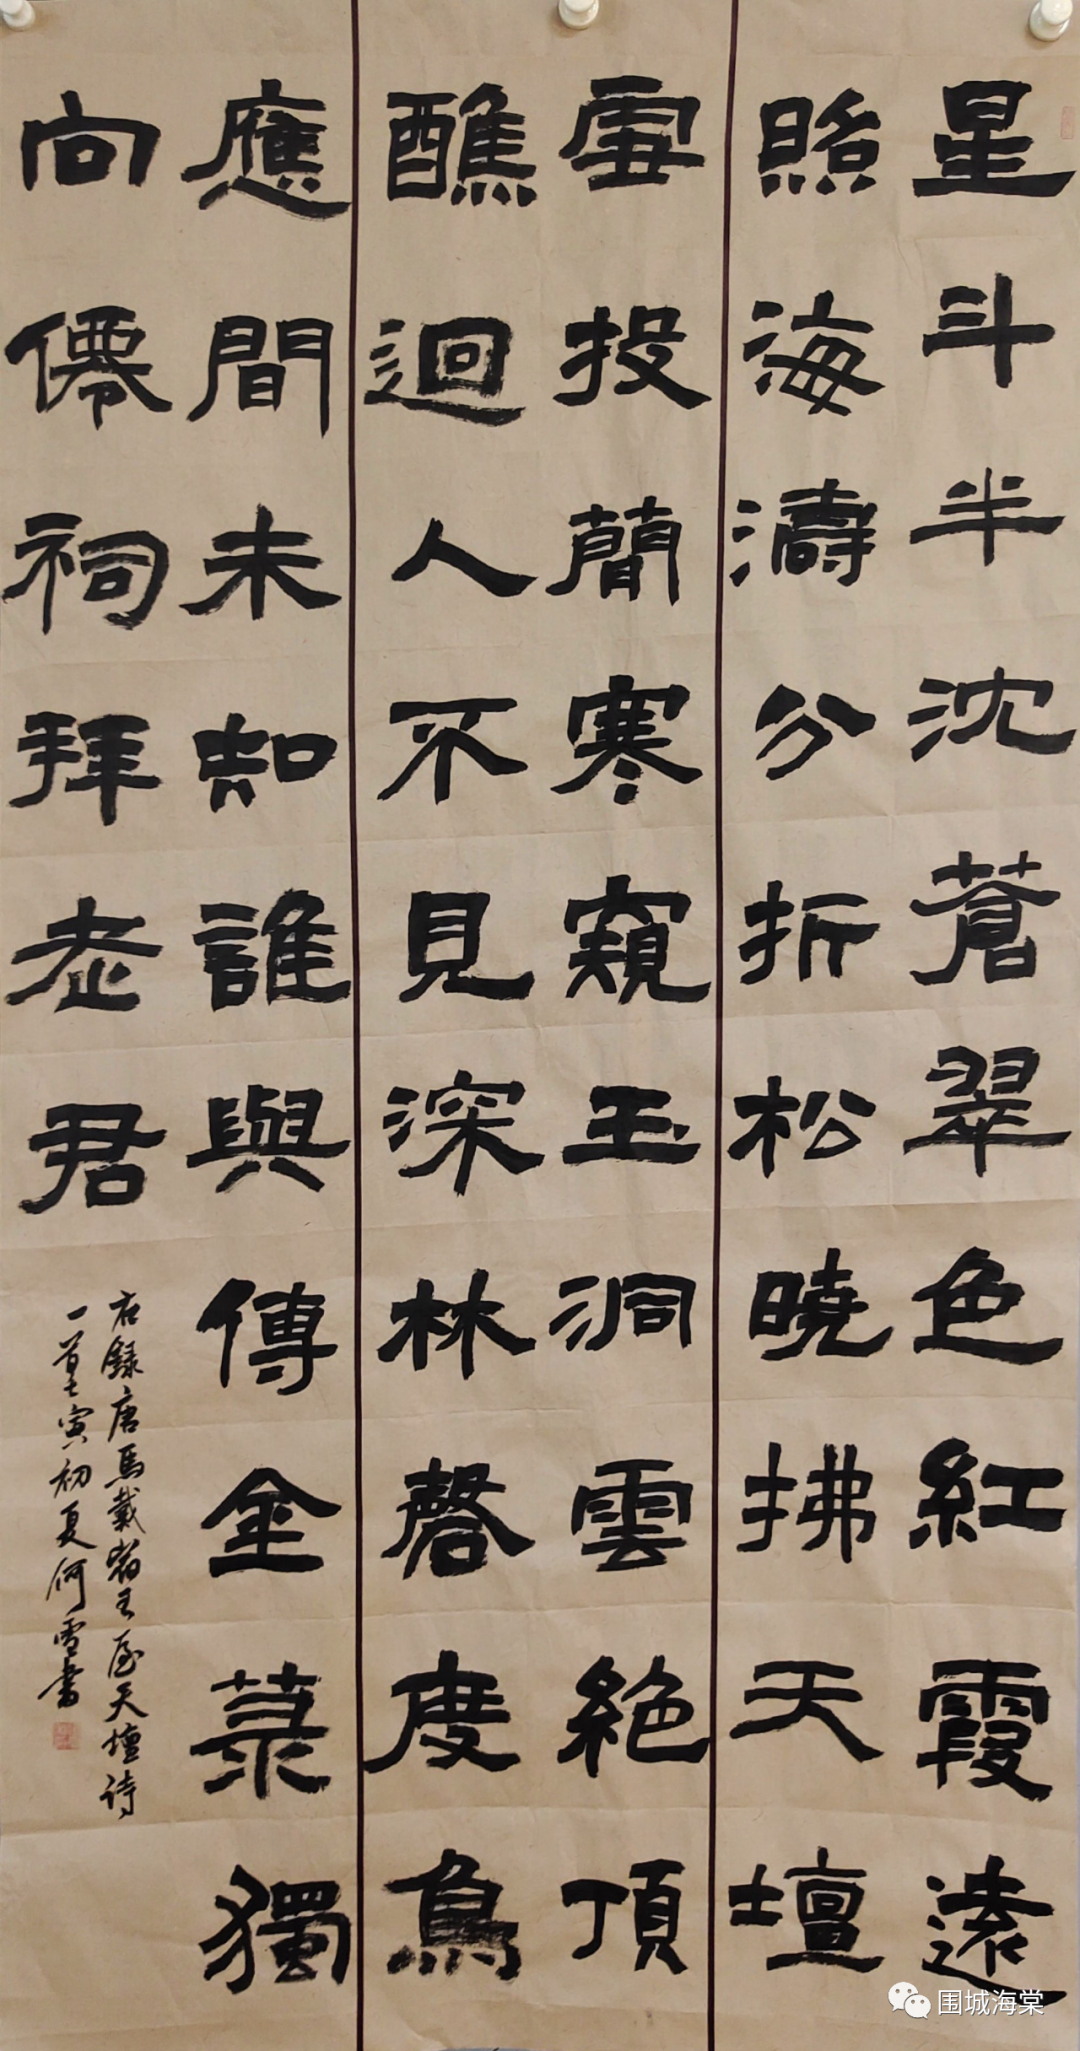 星斗半沈蒼翠色紅霞遠
照海濤分折松曉拂天壇
雪投簡寒窺玉洞雲絶頂
醮迴人不見深林磬度鳥
應間未知誰與傳金菉獨
向僊祠拜老君
右錄唐馬戴宿王屋天壇诗
一首壬寅初夏何雪书
围城海棠